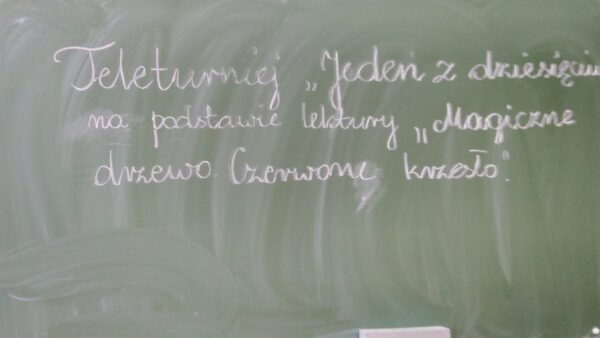 Teleturniej „Jeden z dziesięciu
na podstawie lektury „Magiczne
drzewo. Czerwone krzesło".